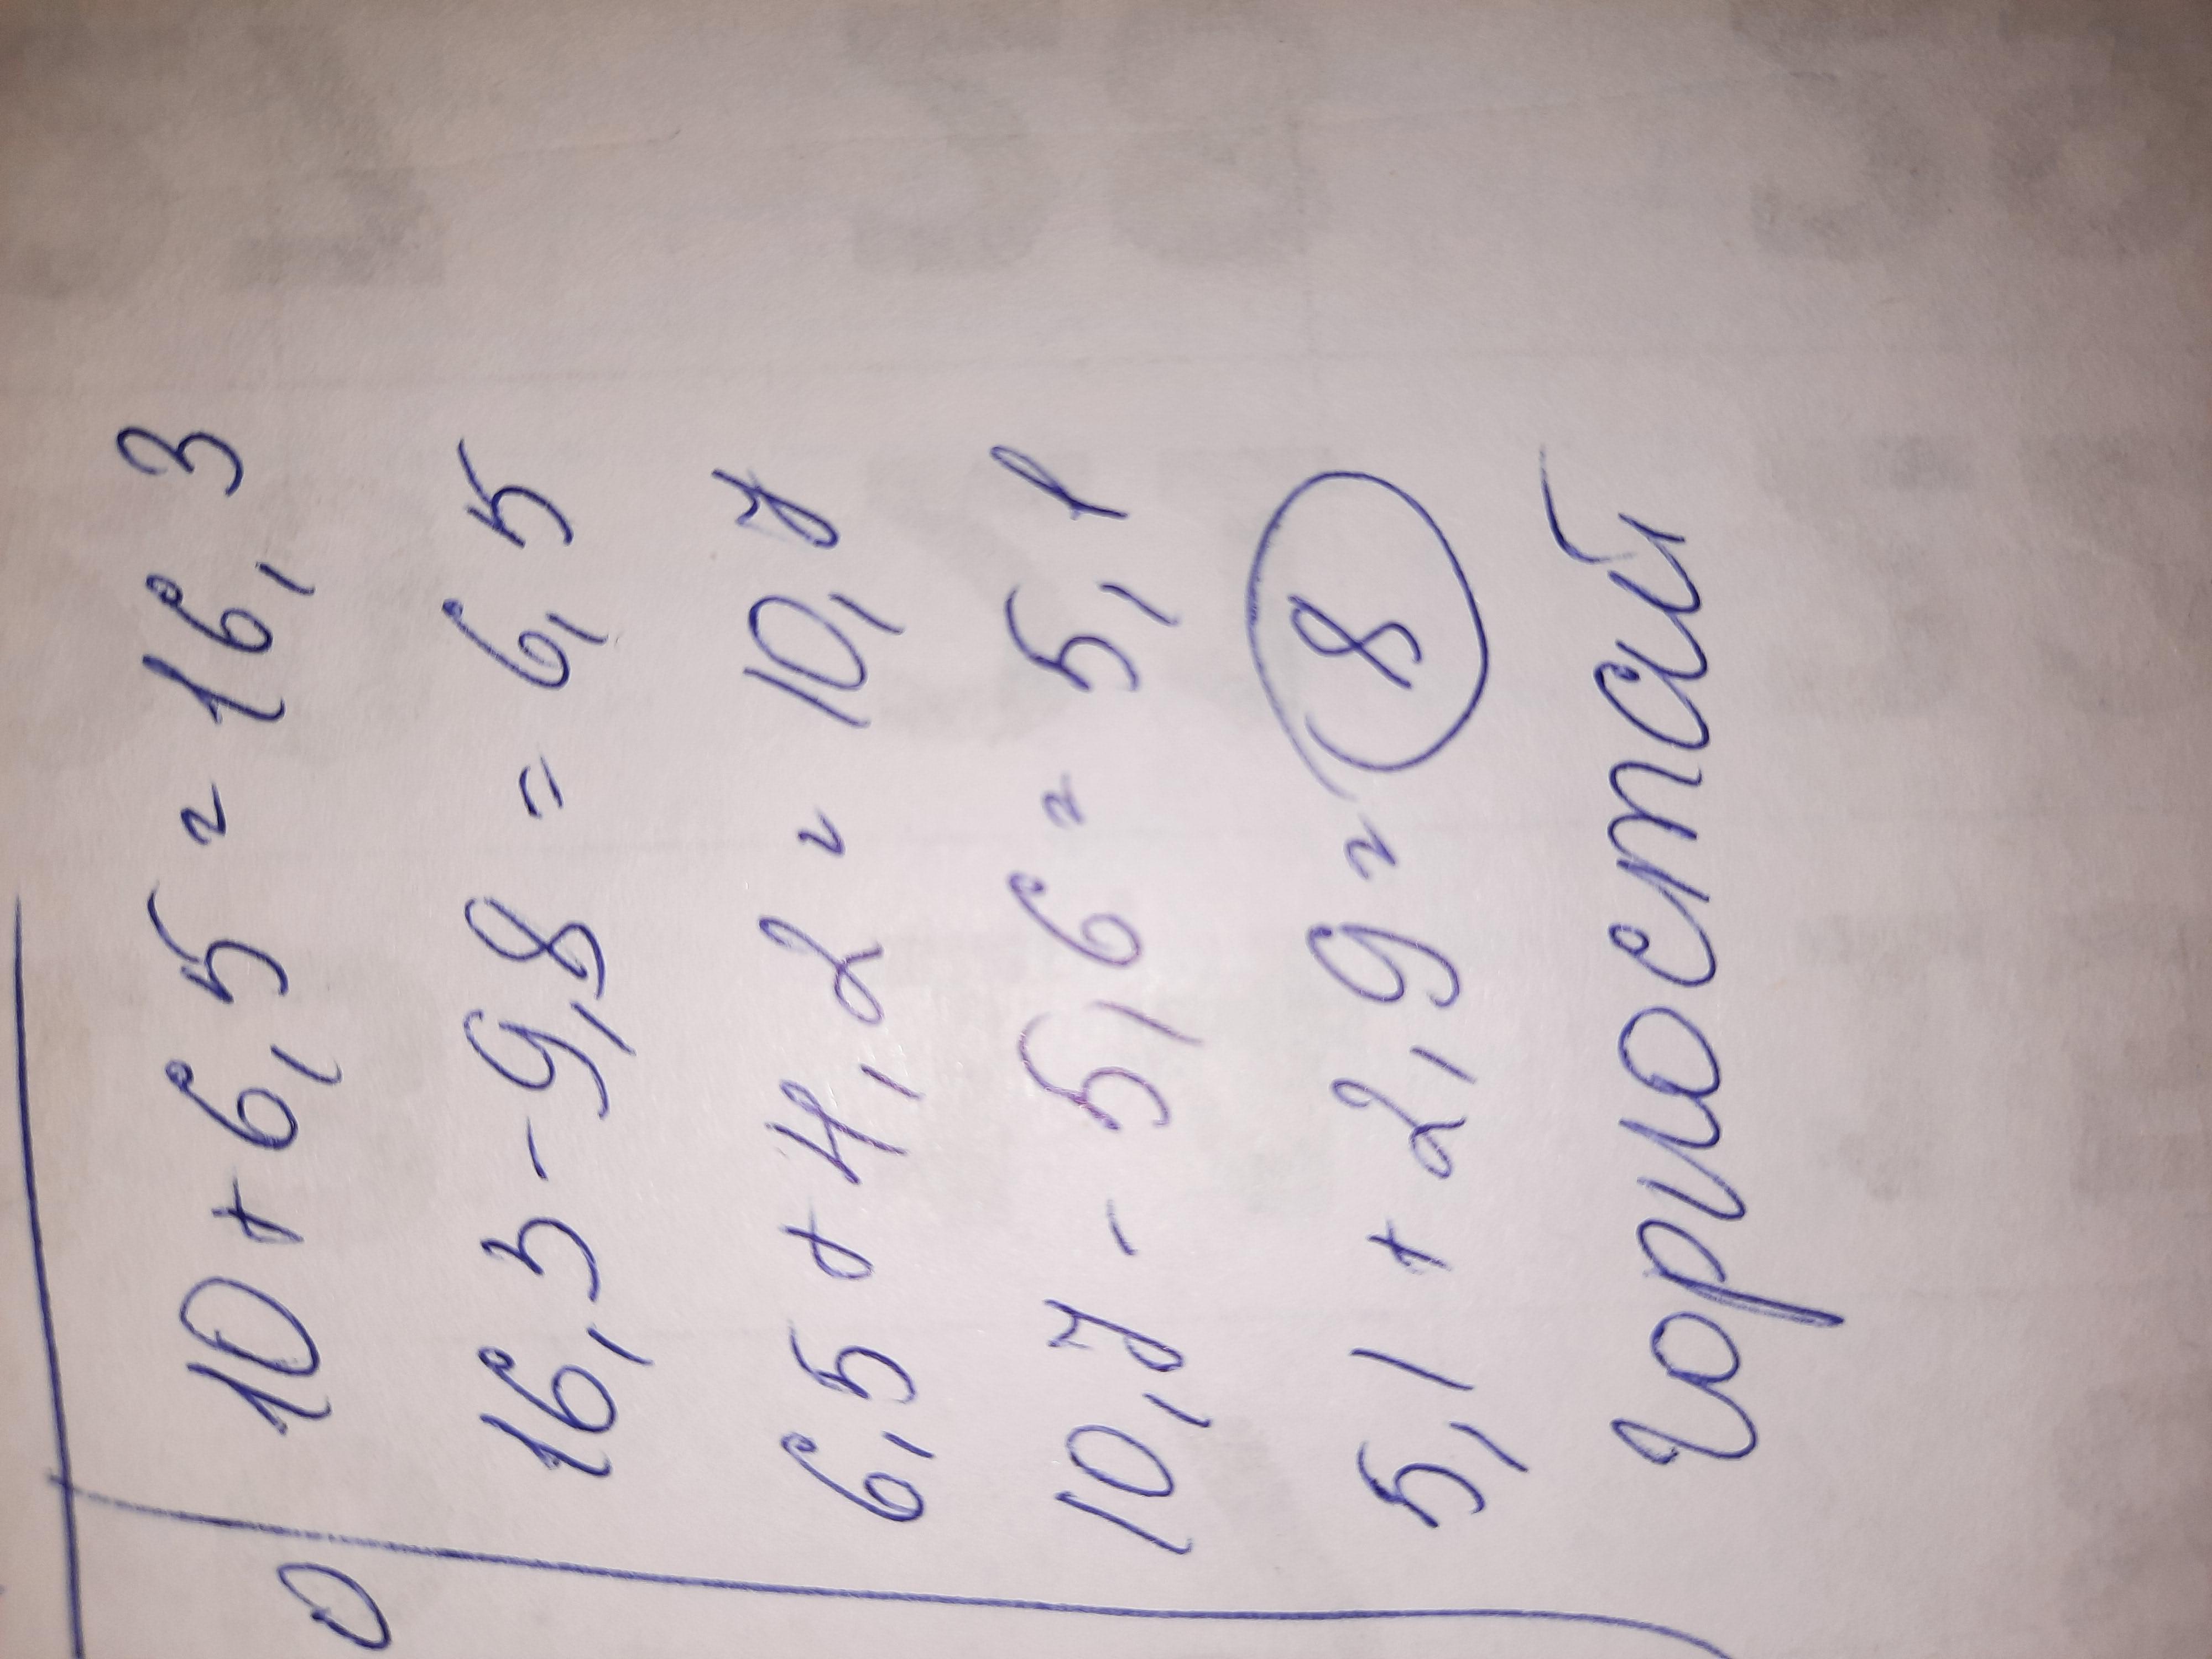 0
10 + 6,5 = 16,3
16,3 - 9,8 = 6,5
6,5 + 4,2 = 10,7
10,7 - 5,6 = 5,1
5,1 + 2,9 = 8
горностай